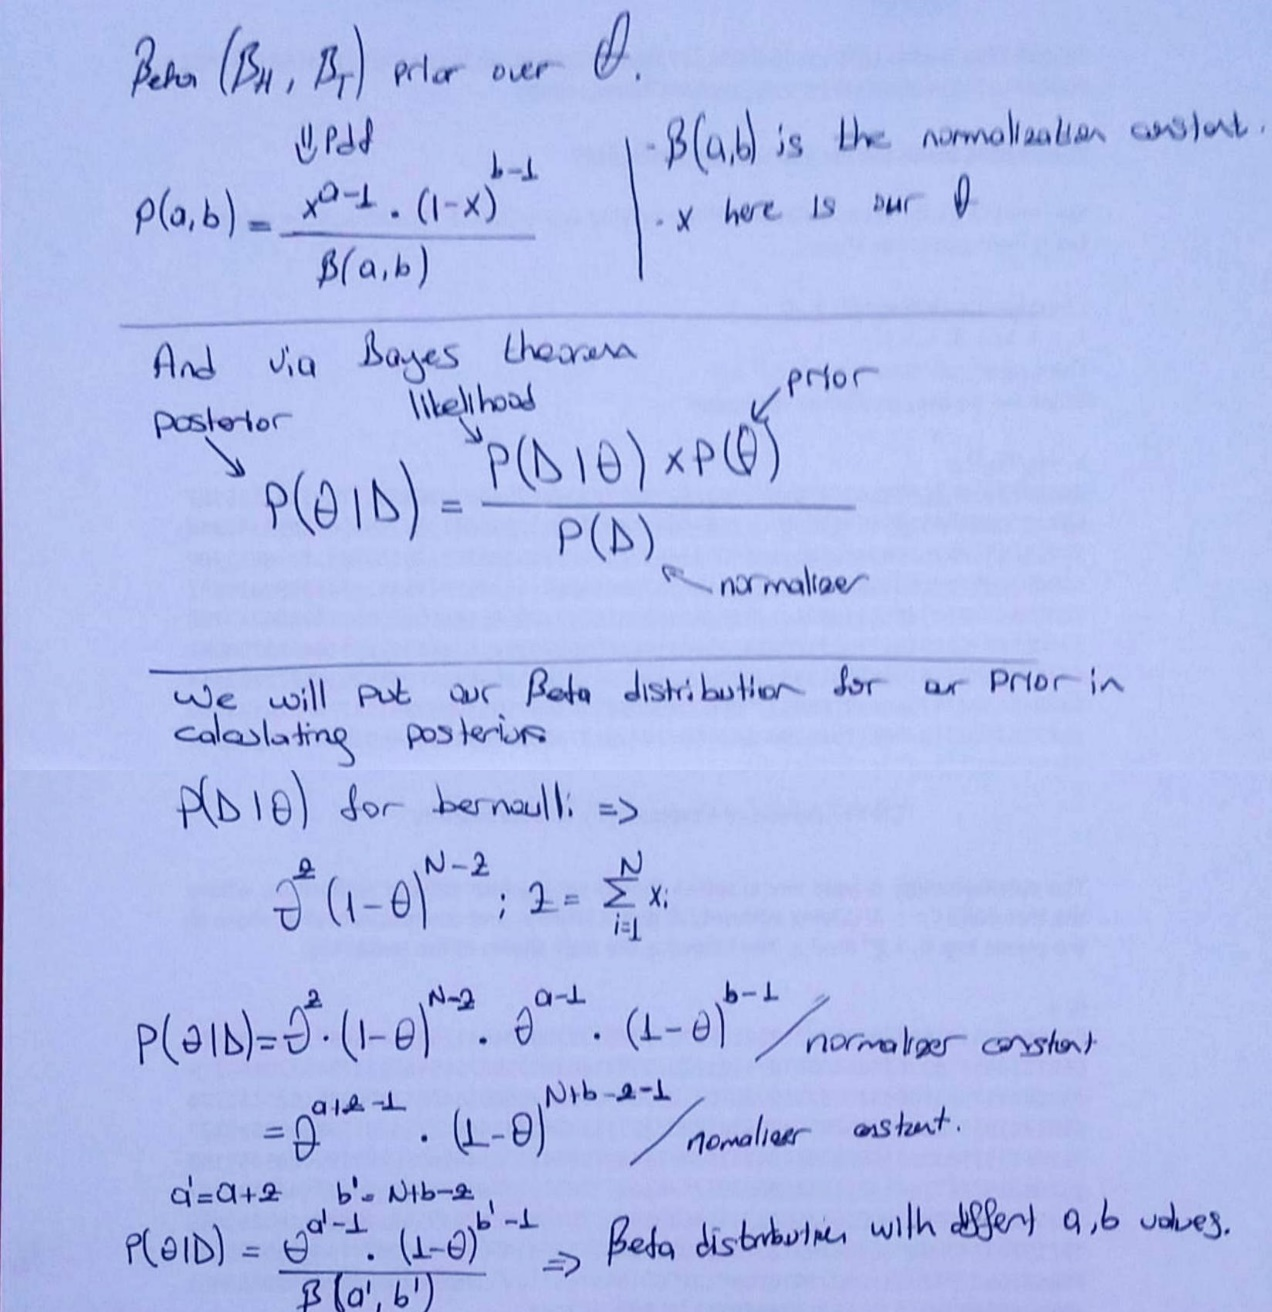 Beta (β_H, β_T) prior over θ.
⇓ Pdf
P(a,b) = x^(a-1) . (1-x)^(b-1) / β(a,b)
- β(a,b) is the normalization constant.
. x here is our θ
And via Bayes theorem
posterior likelihood prior
P(θ|D) = P(D|θ) x P(θ) / P(D)
normalizer
We will put our Beta distribution for our prior in
calculating posterior
P(D|θ) for bernoulli =>
θ^z (1-θ)^(N-z) ; z = Σ_(i=1)^N xi
P(θ|D) = θ^z (1-θ)^(N-z) . θ^(a-1) . (1-θ)^(b-1) / normalizer constant
= θ^(a+z-1) . (1-θ)^(N+b-z-1) / normalizer constant.
a' = a+z b' = N+b-z
P(θ|D) = θ^(a'-1) . (1-θ)^(b'-1) / β(a', b') => Beta distribution with differt a, b values.